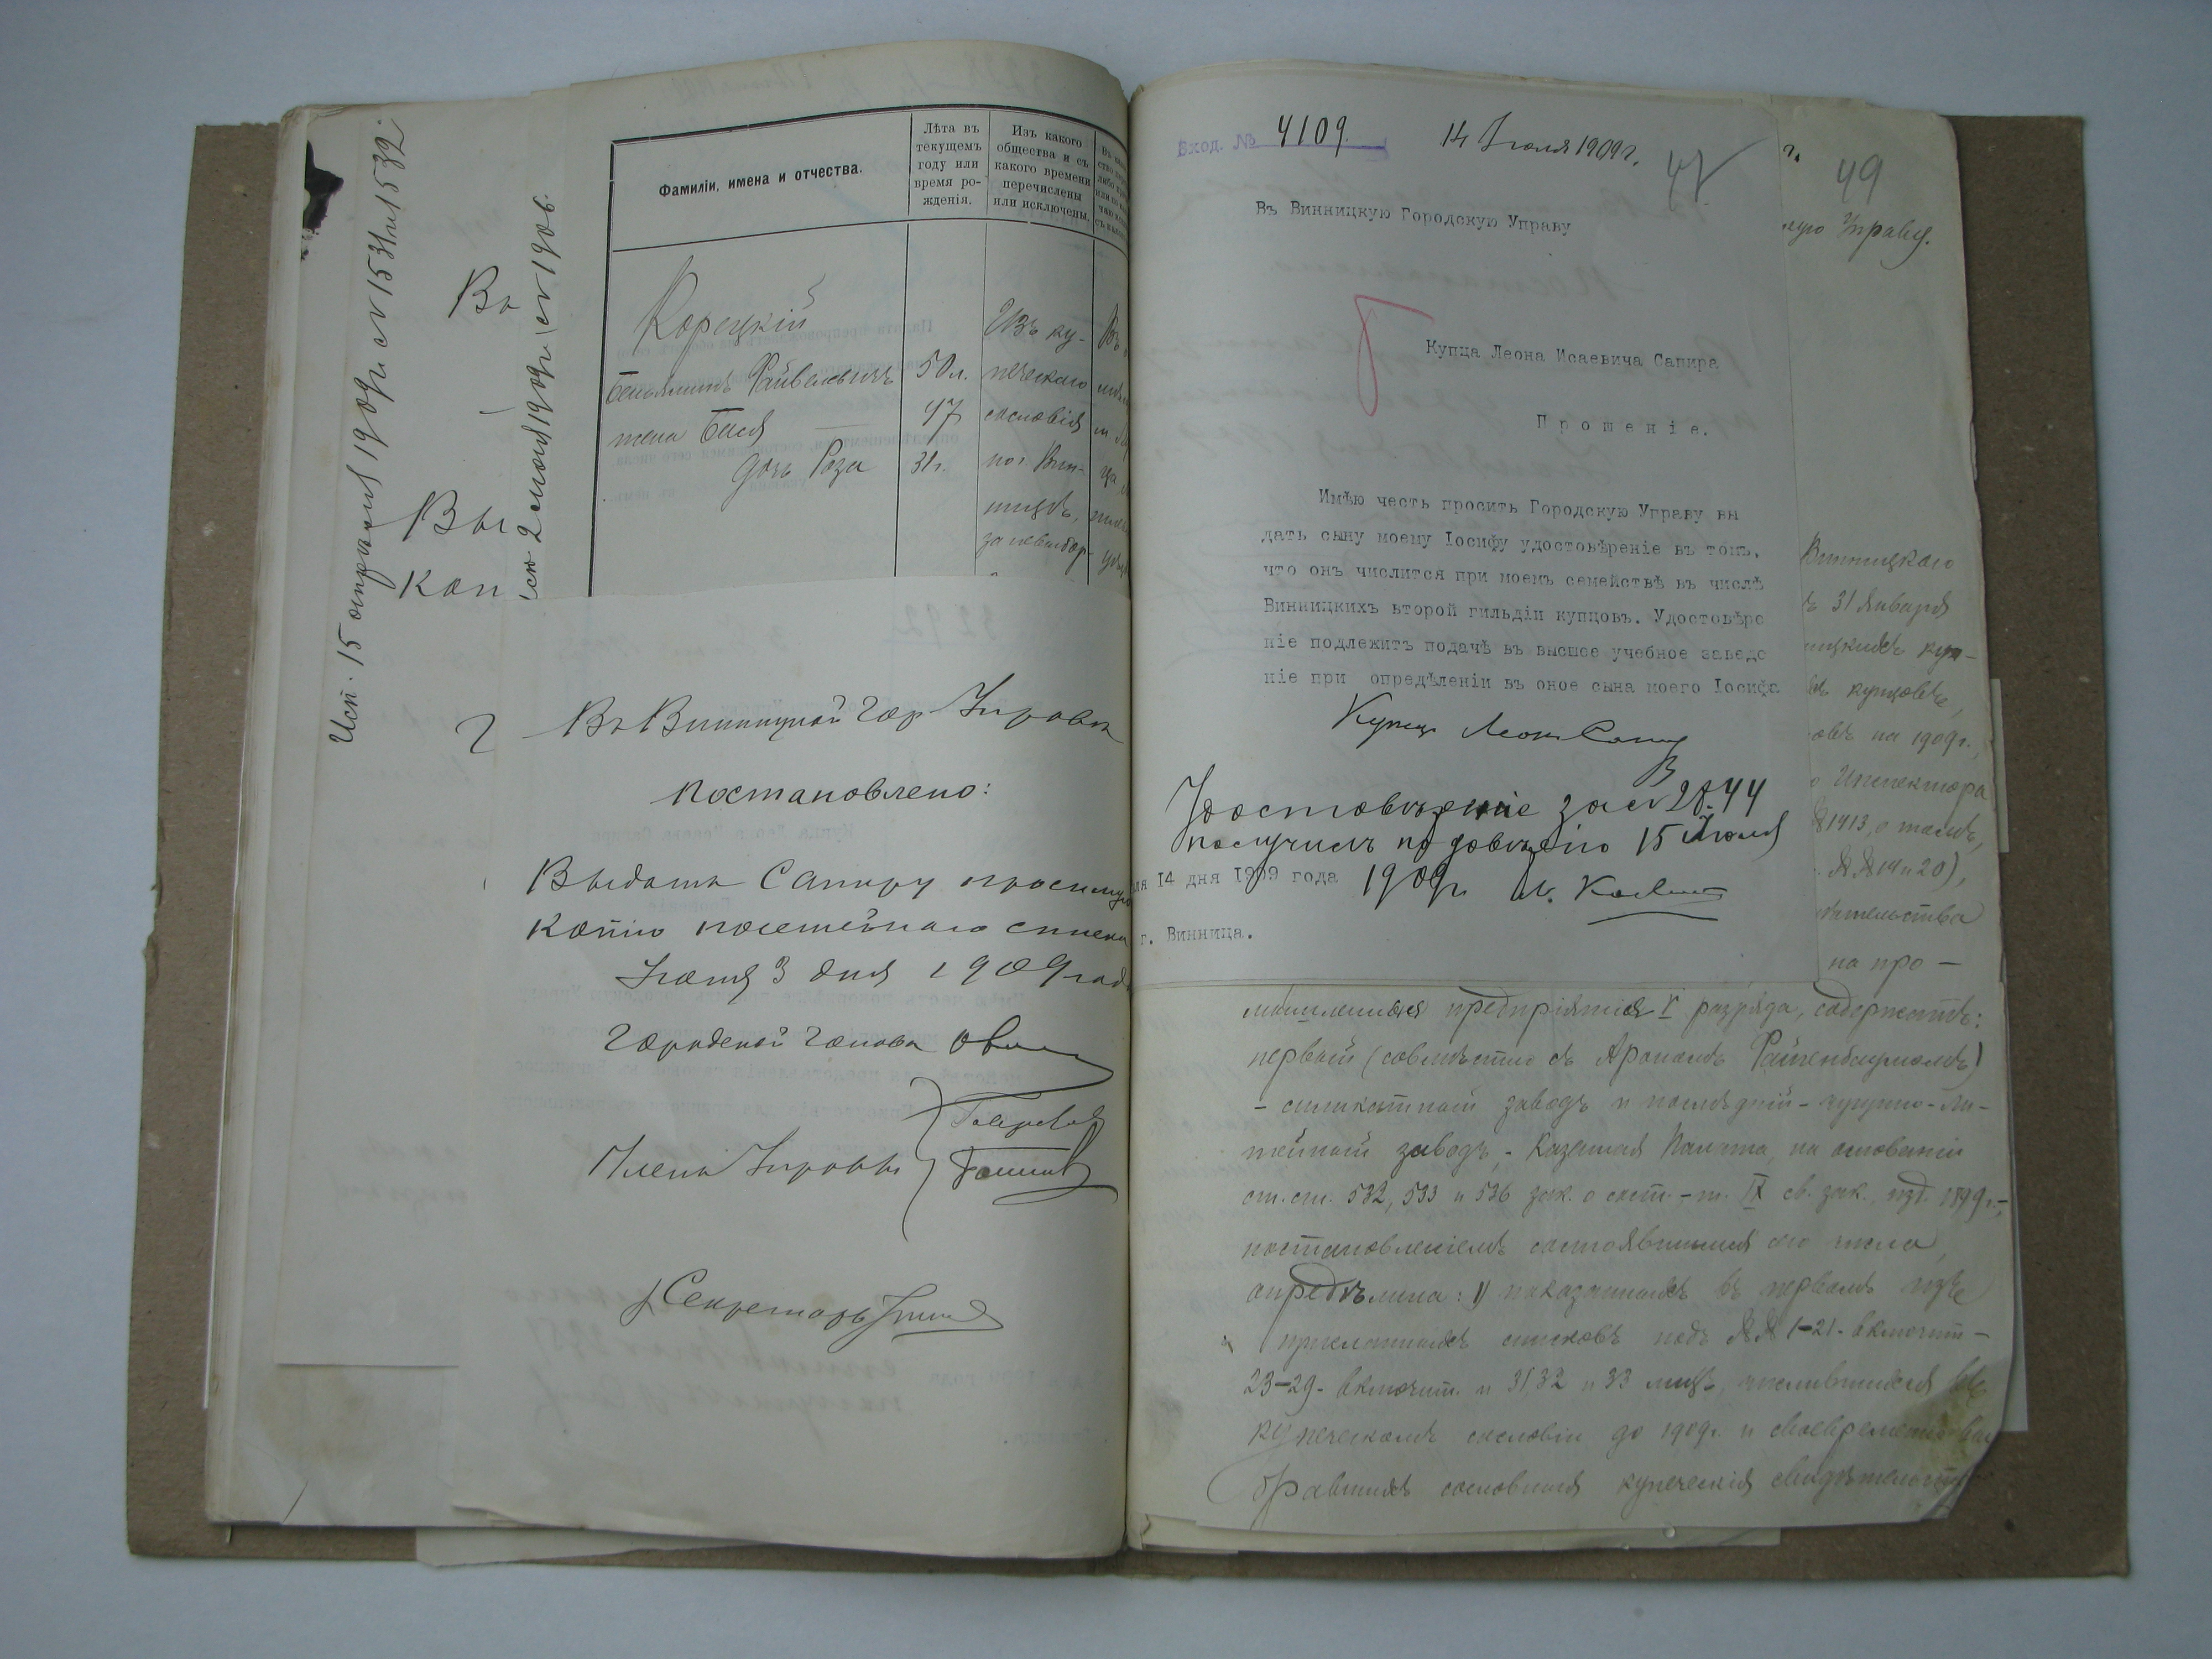 Исп. 15 апрѣля 1909 г. за № 1531 и 1532.
Вы
Вы
коп
2 Іюля 1909 г. за № 1906.
Фамиліи, имена и отчества.
Лѣта въ
текущемъ
году или
время ро-
жденія.
Изъ какого
общества и съ
какого времени
перечислены
или исключены.
Корецкій
Беньяминъ Файвелевичъ 50 л.
жена Бася 47
дочь Роза 31 г.
Изъ ку-
печескаго
сословія
по г. Вин-
ницѣ,
за невыбор-
Въ Винницкой Гор. Управѣ
Постановлено:
Выдать Сапиру просимую
копію посемейнаго списка
Іюля 3 дня 1909 года
Городской Голова
Члены Управы
Секретарь
Вход. № 4109.
14 Іюля 1909 г.
47
Въ Винницкую Городскую Управу
Купца Леона Исаевича Сапира
Прошеніе.
Имѣю честь просить Городскую Управу вы
дать сыну моему Іосифу удостовѣреніе въ томъ,
что онъ числится при моемъ семействѣ въ числѣ
Винницкихъ второй гильдіи купцовъ. Удостовѣре
ніе подлежитъ подачѣ въ высшое учебное заведе
ніе при опредѣленіи въ оное сына моего Іосифа
Купецъ Леонъ Сапир
Удостовѣреніе за № 2844
получилъ по довѣрію 15 Июля
1909 г.
ля 14 дня 1909 года
г. Винница.
г.
49
скую Управу.
Винницкаго
31 Января
ницкихъ куп-
купцовъ,
овъ на 1909 г.,
Инспектора
№ 1413, о томъ,
№№ 19 и 20),
дѣтельства
на про-
мышленныя предпріятія V разряда, содержатъ:
первый (совмѣстно съ Арономъ Файненбаумомъ)
- силикатный заводъ и послѣдній - чугунно-ли-
тейный заводъ, - Казенная Палата, на основаніи
ст. ст. 532, 533 и 536 зак. о сост. - т. IX св. зак. изд. 1899 г.,-
постановленіемъ состоявшимся сего числа,
опредѣлила: 1) показанныхъ въ первомъ изъ
приложенныхъ списковъ подъ №№ 1-21 - включит. -
23-29 - включит. и 31, 32 и 33 лицъ, числившихся въ
купеческомъ сословіи до 1909 г. и своевременно вы
бравшихъ сословныя купеческія свидѣтельства